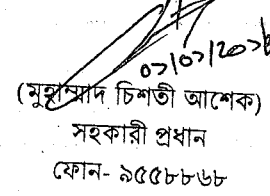 ০১/০১/২০১৮
(মুহাম্মাদ চিশতী আশেক)
সহকারী প্রধান
ফোন- ৯৫৫৮৮৬৮